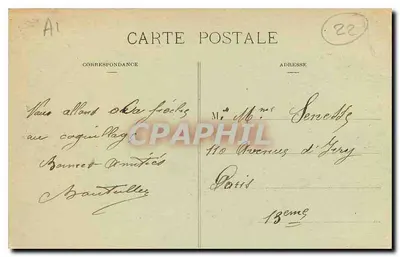 A1
22
CARTE POSTALE
CORRESPONDANCE
ADRESSE
Nous allons à la pêche
au coquillage
Bonnes Amitiés
M. Mme
110 Avenue d'Ivry
Paris
13eme
CPARPHIL